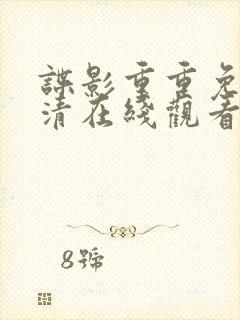 諜影重重免
清在綫觀看
8號